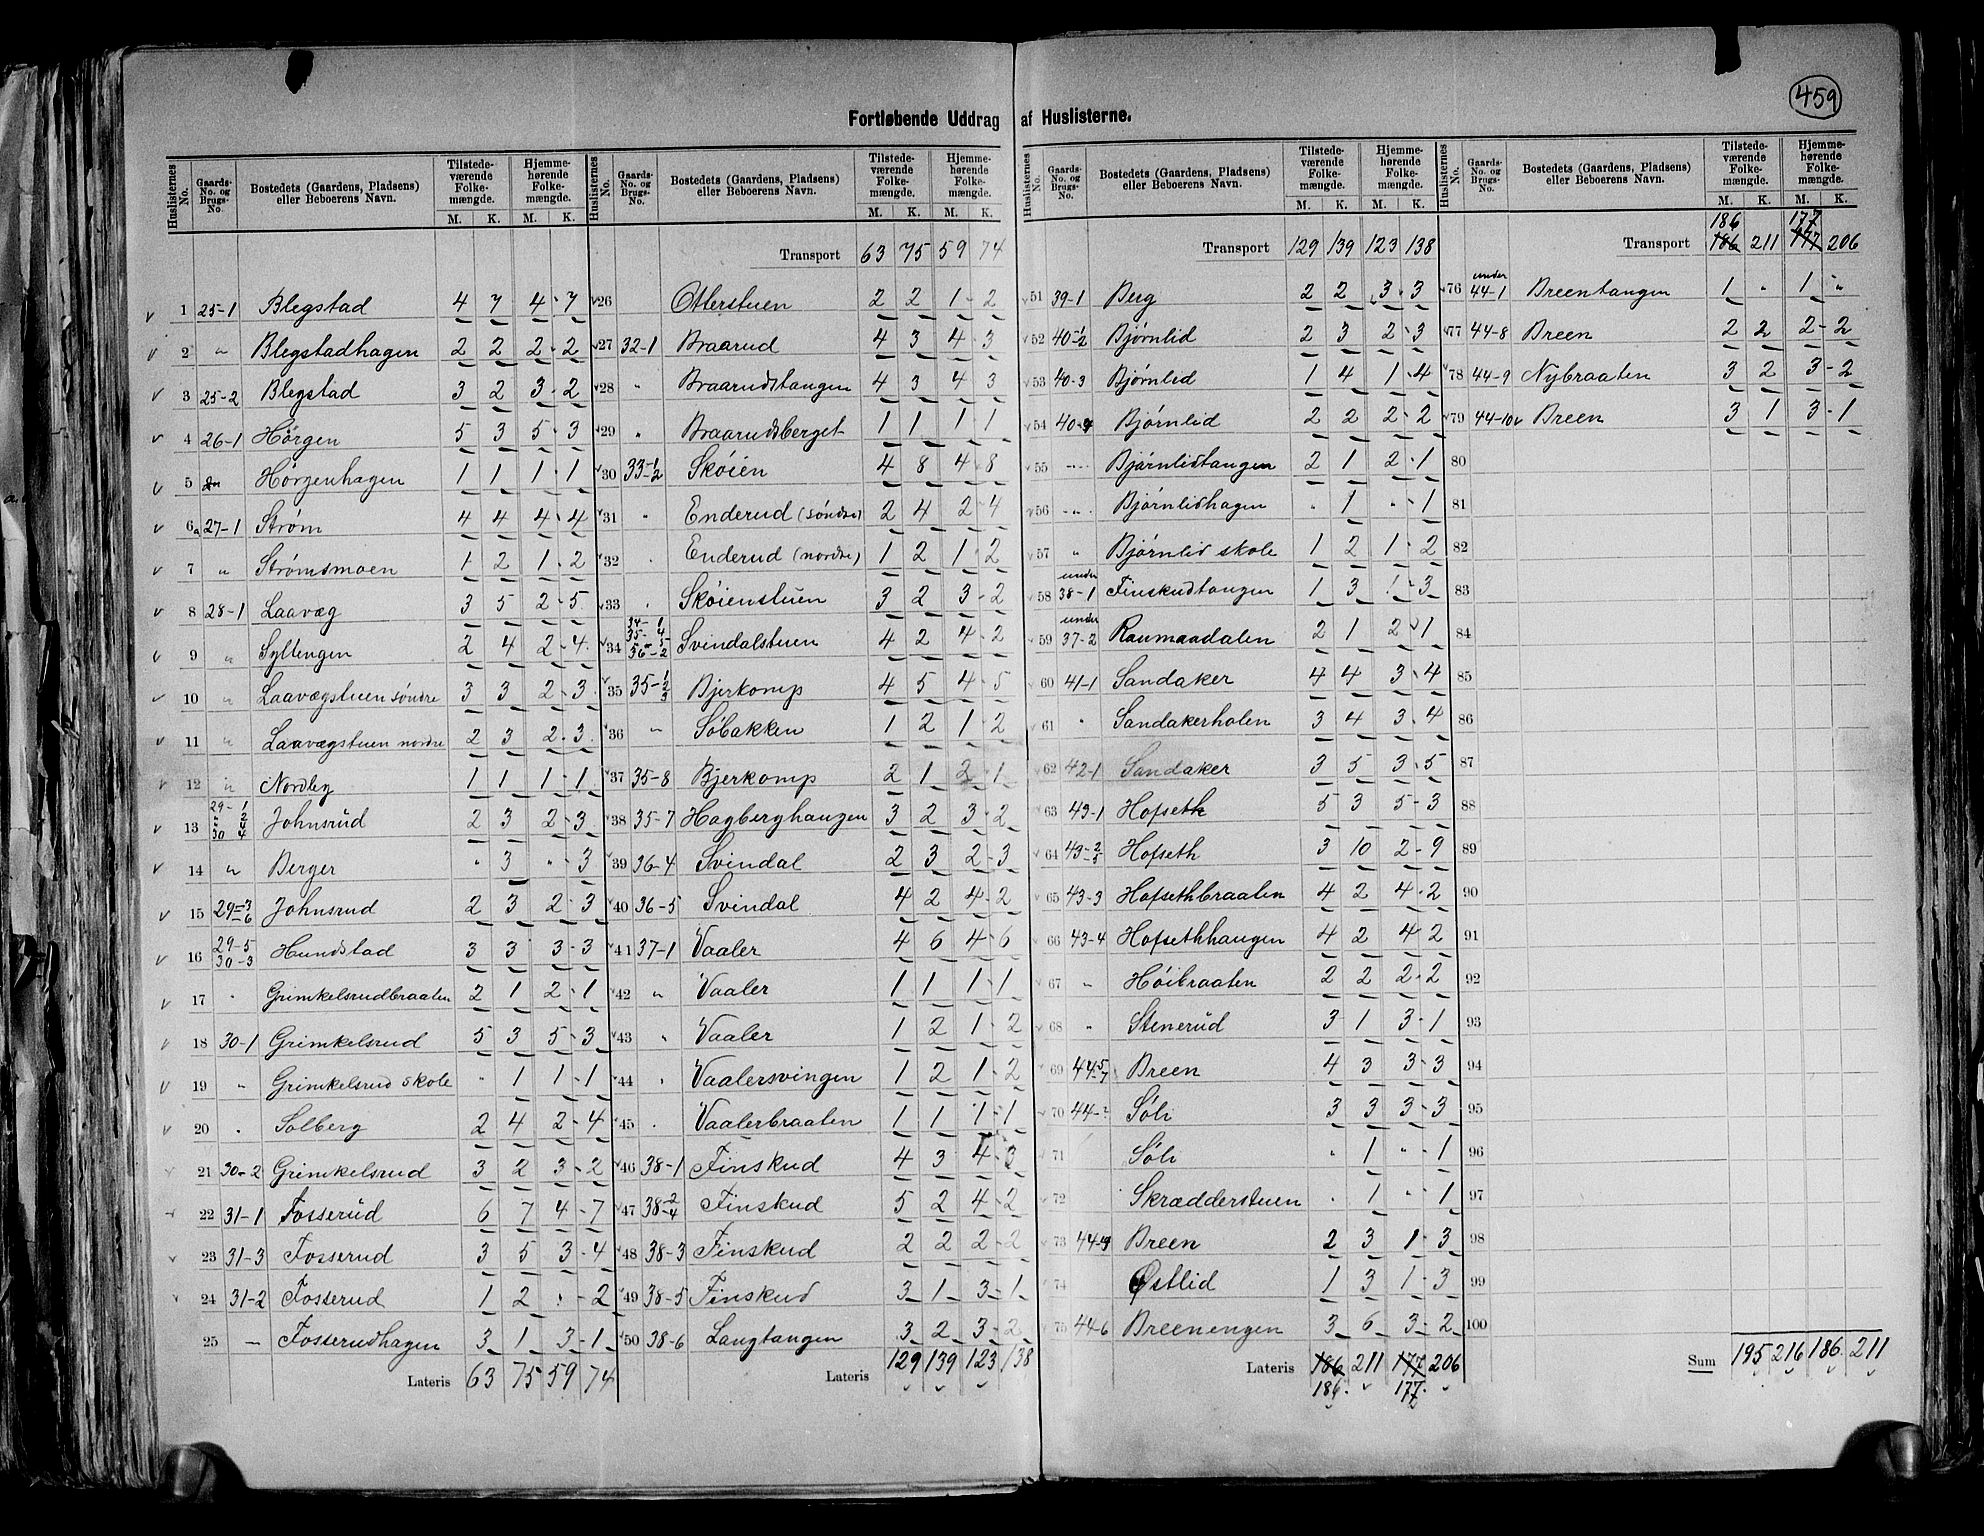 459
Fortløbende Uddrag af Huslisternes.
Huslisternes No. | Gaards-No. og Brugs-No. | Bostedets (Gaardens, Pladsens) eller Beboerens Navn. | Tilstedeværende Folkemængde. M. K. | Hjemmehørende Folkemængde. M. K.
1 25-1 Blegstad 4 7 4-7
2 " Blegstadhagen 2 2 2-2
3 25-2 Blegstad 3 2 3-2
4 26-1 Hørgen 5 3 5-3
5 Hørgenhagen 1 1 1-1
6 27-1 Strøm 4 4 4-4
7 " Strømsmoen 1 2 1-2
8 28-1 Laavæg 3 5 2-5
9 " Syllengen 2 4 2-4
10 " Laavægstuen søndre 3 3 2-3
11 " Laavægstuen nordre 2 3 2-3
12 " Nordby 1 1 1-1
13 Johnsrud 2 3 2-3
14 " Berger " 3 "-3
15 29-3 6 Johnsrud 2 3 2-3
16 29-5 30-3 Hundstad 3 3 3-3
17 " Grimkelsrudbraaten 2 1 2-1
18 30-1 Grimkelsrud 5 3 5-3
19 " Grimkelsrud skole " 1 1-1
20 " Solberg 2 4 2-4
21 30-2 Grimkelsrud 3 2 3-2
22 31-1 Fosserud 6 7 4-7
23 31-3 Fosserud 3 5 3-4
24 31-2 Fosserud 1 2 "-2
25 Fosserudhagen 3 1 3-1
Lateris 63 75 59 74
Transport 63 75 59 74
26 Otterstuen 2 2 1-2
27 32-1 Braarud 4 3 4-3
28 " Braarudstangen 4 3 4 3
29 " Braarudsberget 1 1 1-1
30 33-1 2 Skøien 4 8 4-8
31 " Enderud (søndre) 2 4 2-4
32 " Enderud (nordre) 1 2 1-2
33 " Skøienstuen 3 2 3-2
34 34-1 35-4 36-2 Svindalstuen 4 2 4-2
35 35-1 2 3 Bjerkomp 4 5 4-5
36 " Søbakken 1 2 1-2
37 35-8 Bjerkomp 2 1 2-1
38 35-7 Hagberghaugen 3 2 3-2
39 36-4 Svindal 2 3 2-3
40 36-5 Svindal 4 2 4-2
41 37-1 Vaaler 4 6 4-6
42 " Vaaler 1 1 1-1
43 " Vaaler 1 2 1-2
44 " Vaalersvingen 1 2 1-2
45 " Vaalerbraaten 1 1 1-1
46 38-1 Finskud 4 3 4-3
47 38-2 4 Finskud 5 2 4-2
48 38-3 Finskud 2 2 2-2
49 38-5 Finskud 3 1 3-1
50 38-6 Langtangen 3 2 3-2
Lateris 129 139 123 138
Transport 129 139 123 138
51 39-1 Berg 2 2 3-3
52 40-1 2 Bjørnlid 2 3 2-3
53 40-3 Bjørnlid 1 4 1-4
54 40-4 Bjørnlid 2 2 2-2
55 Bjørnlidtangen 2 1 2-1
56 Bjørnlidhagen " 1 "-1
57 " Bjørnlid skole 1 2 1-2
58 under 38-1 Finskudtangen 1 3 1-3
59 under 37-2 Raumaadalen 2 1 2-1
60 41-1 Sandaker 4 4 3-4
61 " Sandakerholen 3 4 3-4
62 42-1 Sandaker 3 5 3-5
63 43-1 Hofseth 5 3 5-3
64 43-2 5 Hofseth 3 10 2-9
65 43-3 Hofsethbraaten 4 2 4-2
66 43-4 Hofsethhaugen 4 2 4-2
67 " Høibraaten 2 2 2-2
68 " Stenerud 3 1 3-1
69 44-5 7 Breen 4 3 3-3
70 44-2 Søli 3 3 3-3
71 Søli " 1 "-1
72 Skrædderstuen " 1 "-1
73 Breen 2 3 1-3
74 Østlid 1 3 1-3
75 44-6 Breenengen 3 6 3-2
Lateris 186 211 177 206
186 177
186 177
Transport 186 211 177 206
76 under 44-1 Breentangen 1 " 1-"
77 44-8 Breen 2 2 2-2
78 44-9 Nybraaten 3 2 3-2
79 44-10 Breen 3 1 3-1
80
81
82
83
84
85
86
87
88
89
90
91
92
93
94
95
96
97
98
99
100
Sum 195 216 186 211